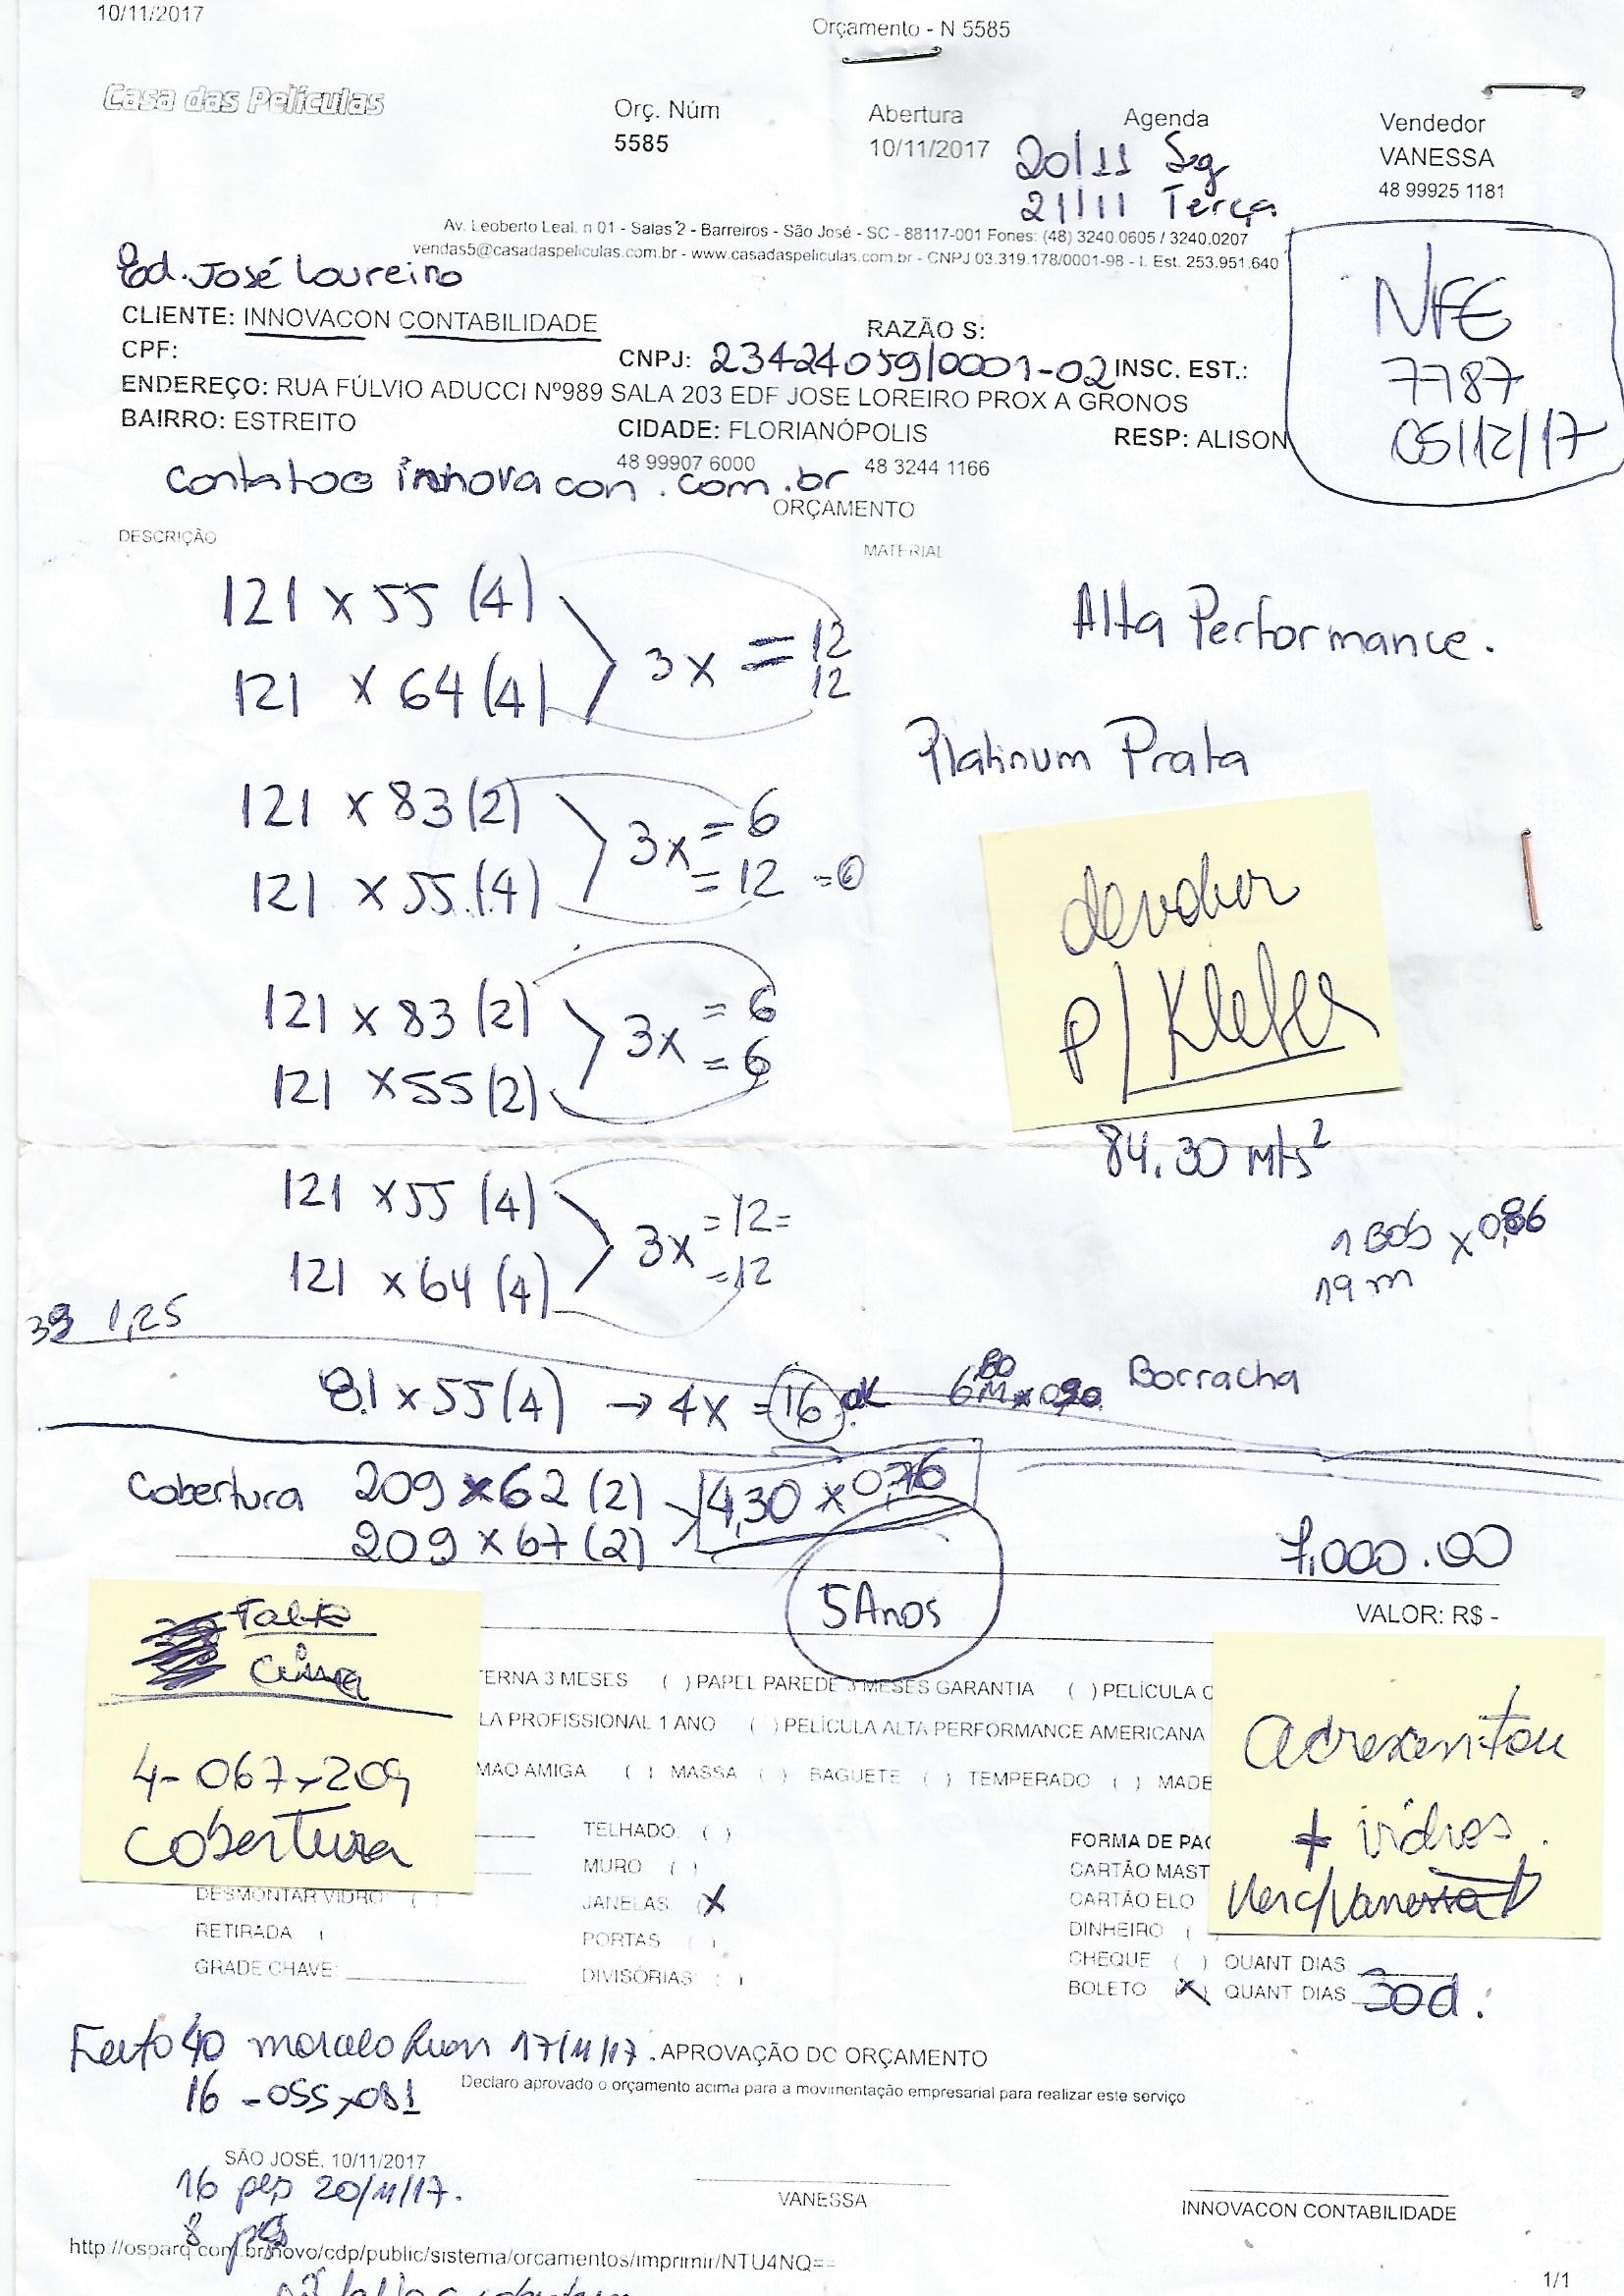 10/11/2017
Orçamento - N 5585
Casa das Películas
Orç. Núm
5585
Abertura
10/11/2017
Agenda
20/11 Seg
21/11 Terça
Vendedor
VANESSA
48 99925 1181
Av. Leoberto Leal, n 01 - Salas 2 - Barreiros - São José - SC - 88117-001 Fones: (48) 3240.0605 / 3240.0207
vendas5@casadaspeliculas.com.br - www.casadaspeliculas.com.br - CNPJ 03.319.178/0001-98 - I. Est. 253.951.640
NFE
7787
05/12/17
Ed. José Loureiro
CLIENTE: INNOVACON CONTABILIDADE RAZÃO S:
CPF: CNPJ: 23424059/0001-02 INSC. EST.:
ENDEREÇO: RUA FÚLVIO ADUCCI Nº989 SALA 203 EDF JOSE LOREIRO PROX A GRONOS
BAIRRO: ESTREITO CIDADE: FLORIANÓPOLIS RESP: ALISON
48 99907 6000 48 3244 1166
contato@innovacon.com.br
ORÇAMENTO
DESCRIÇÃO MATERIAL
121 x 55 (4)
121 x 64 (4)
3x = 12
12
Alta Performance.
Platinum Prata
121 x 83 (2)
121 x 55 (4)
3x = 6
= 12 =0
devolver
p/ Kleber
121 x 83 (2)
121 x 55 (2)
3x = 6
= 6
84.30 mts²
121 x 55 (4)
121 x 64 (4)
3x = 12 =
= 12
1 BOB x 0,86
19 m
1,25
81 x 55 (4) → 4x = 16 ok
Borracha
Cobertura 209 x 62 (2)
209 x 67 (2)
4,30 x 0,76
7,000.00
5 Anos
VALOR: R$ -
Falta
cima
4- 067x209
cobertura
TERNA 3 MESES ( ) PAPEL PAREDE 3 MESES GARANTIA ( ) PELÍCULA C
LA PROFISSIONAL 1 ANO ( ) PELÍCULA ALTA PERFORMANCE AMERICANA
MAO AMIGA ( ) MASSA ( ) BAGUETE ( ) TEMPERADO ( ) MADE
acrescentou
+ vidros.
ver c/ Vanessa
TELHADO ( )
MURO ( )
DESMONTAR VIDRO ( )
JANELAS (X)
RETIRADA (
PORTAS ( )
GRADE CHAVE:
DIVISÓRIAS: ( )
FORMA DE PAG
CARTÃO MAST
CARTÃO ELO
DINHEIRO (
CHEQUE ( ) QUANT DIAS
BOLETO (X) QUANT DIAS 30d.
Feito 40 marcelo Ruan 17/11/17.
APROVAÇÃO DO ORÇAMENTO
16 - 055x081
Declaro aprovado o orçamento acima para a movimentação empresarial para realizar este serviço
SÃO JOSÉ, 10/11/2017
16 pçs 20/11/17.
8 pçs
VANESSA
INNOVACON CONTABILIDADE
http://osparq.com.br/novo/cdp/public/sistema/orcamentos/imprimir/NTU4NQ==
1/1